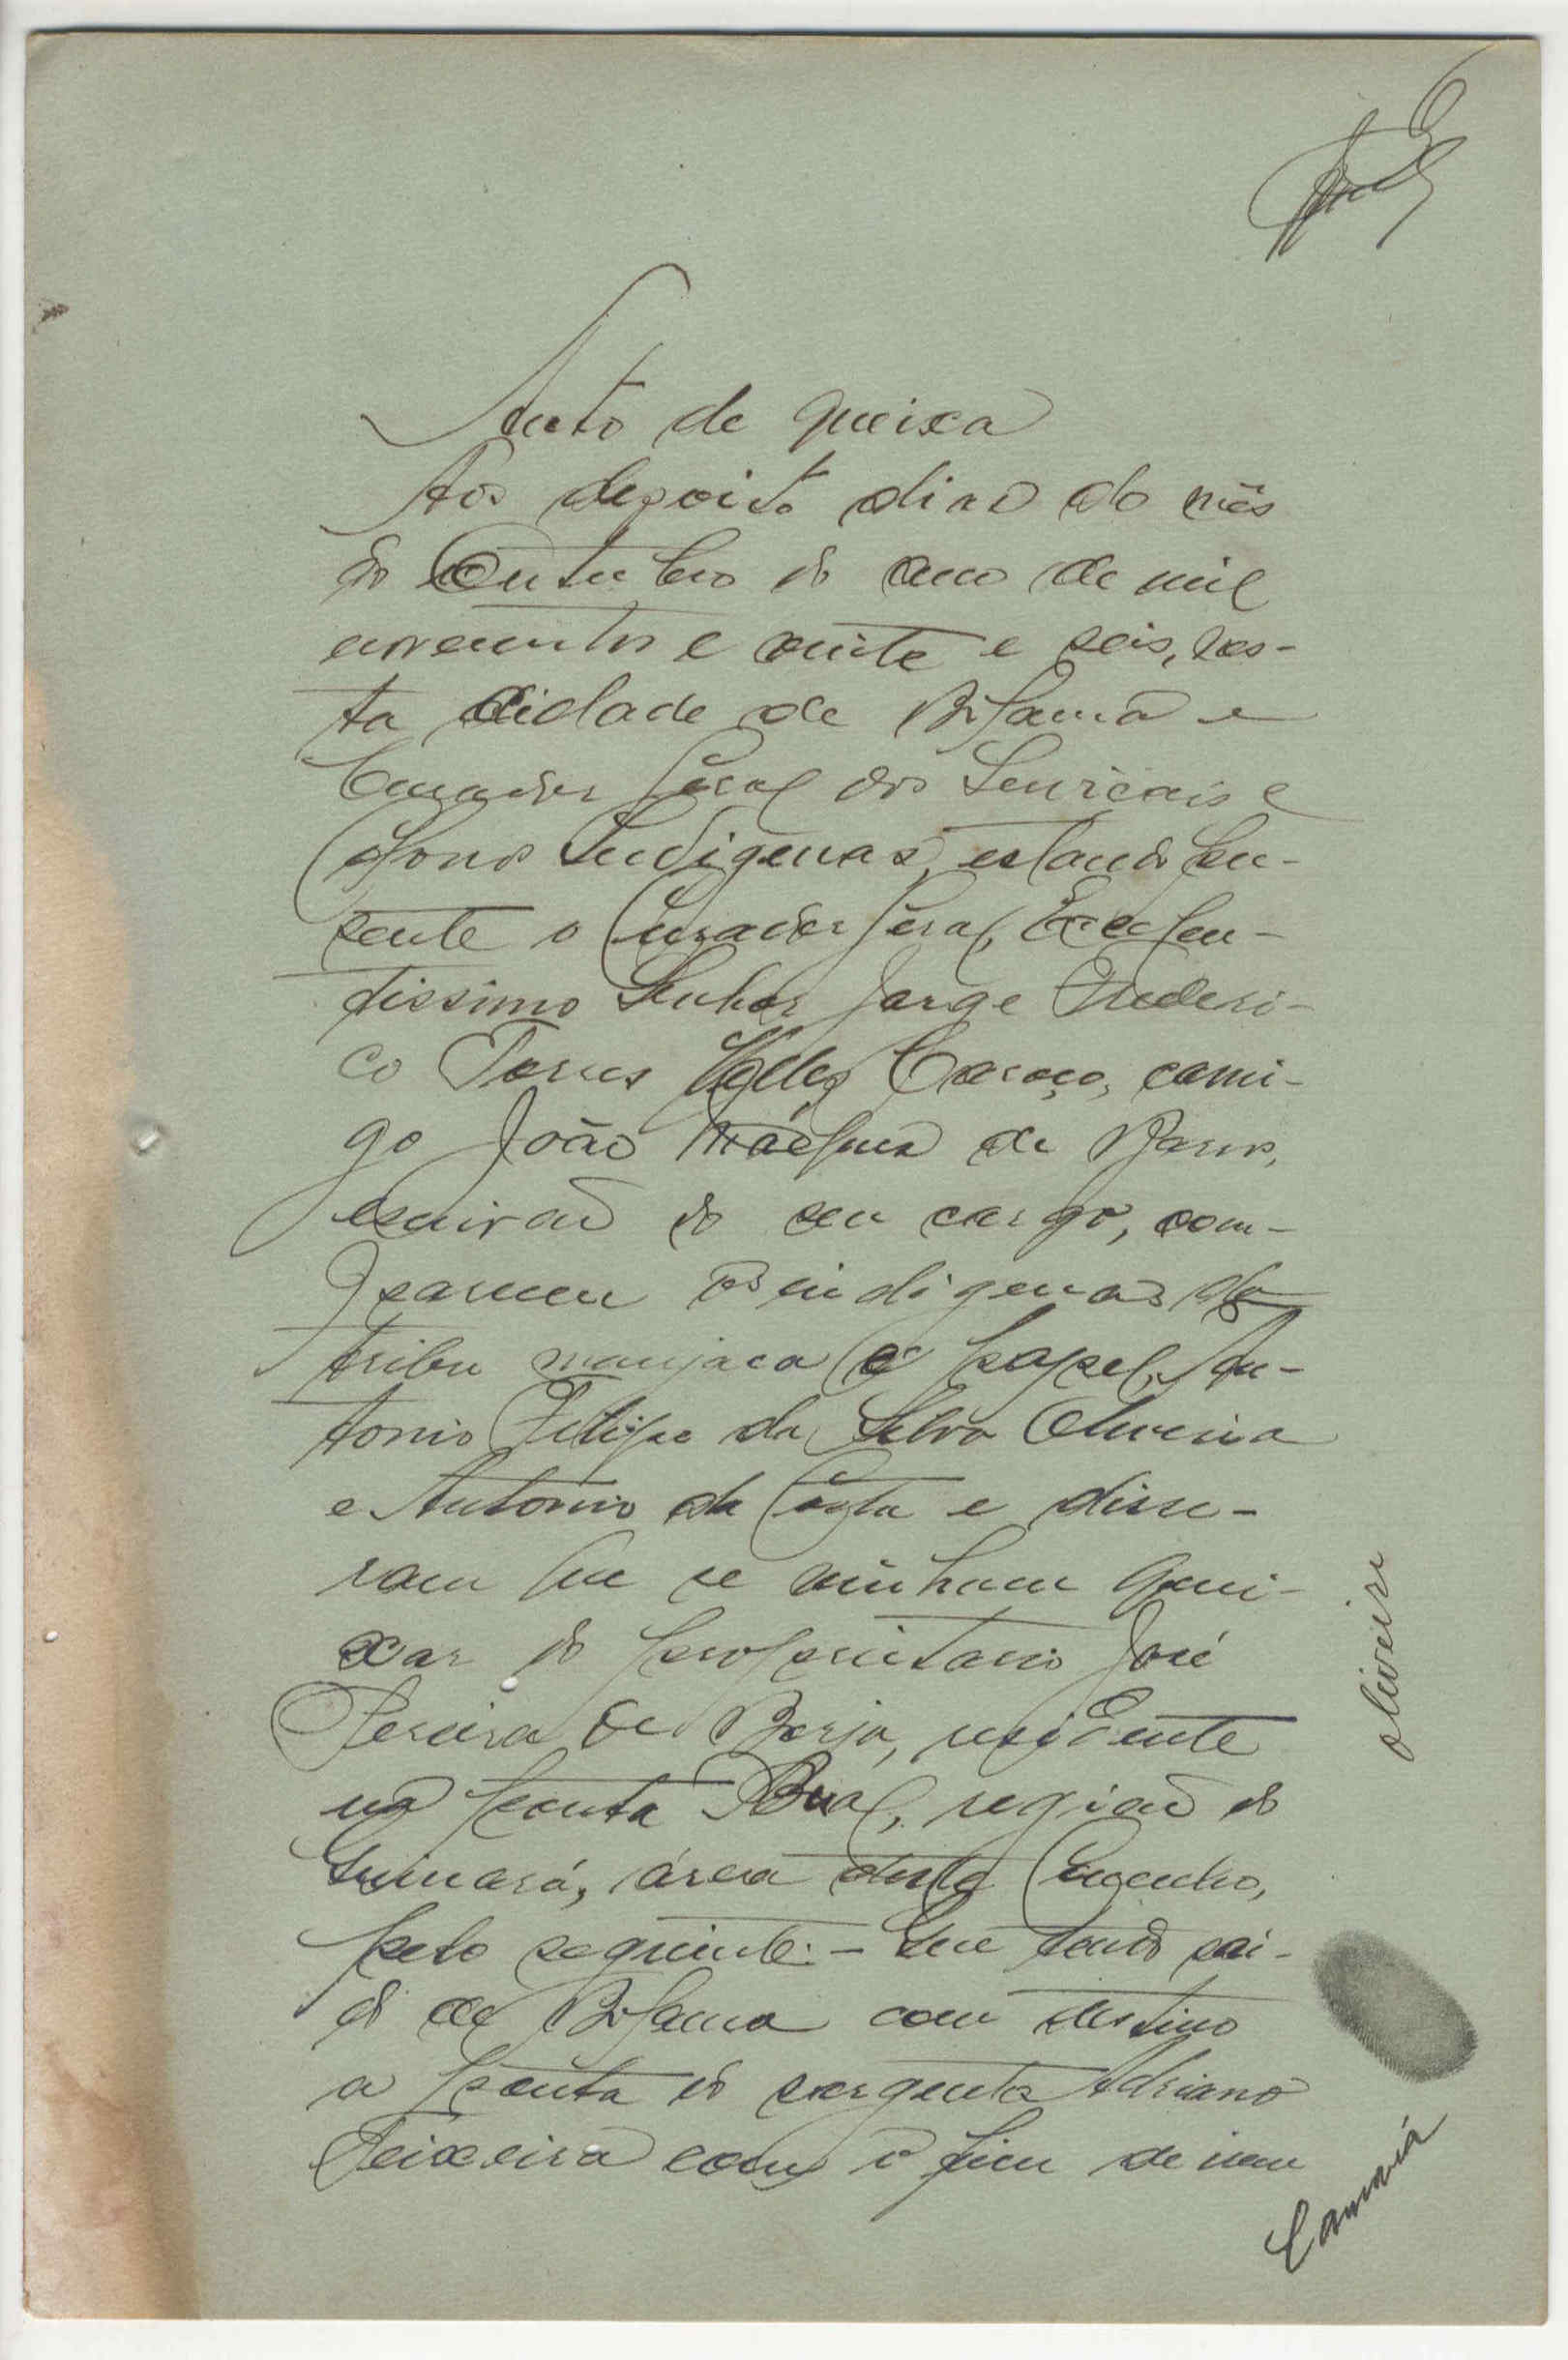 Auto de queixa
Aos dezoito dias do mês
do Outubro do ano de mil
novecentos e vinte e seis, nes-
ta cidade de Bolama e
Curadoria Geral dos Serviçais e
Colonos Indigenas, estando pre-
sente o Curador Geral, Excelen-
tissimo Senhor Jorge Frederi-
co Torres Velez Caroço, comi-
go João de Barros,
escrivão do seu cargo, com-
pareceu os indigenas da
tribu manjaca e papel, An-
tonio Filipe da Silva Oliveira
e Antonio da Costa e disse-
ram que se vinham quei-
xar do proprietario José
Pereira de Borja, residente
na ponta Bual, região do
Guinará, área deste Concelho,
pelo seguinte: - Que tendo sai-
do de Bolama com destino
a ponta do sargento Adriano
Teixeira com o fim de irem
oliveira